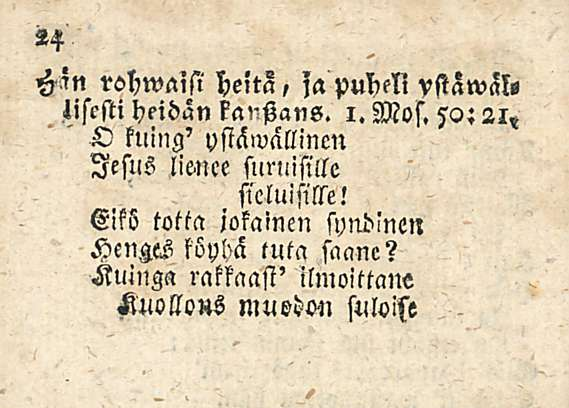 24
Hän rohwaisi heitä, ja puheli ystäwäl-
lisesti heidän kanßans. 1. Mos. 50: 21.
O kuing' ystäwällinen
Jesus lienee suruisille
sieluisille!
Eikö totta jokainen syndinen
Henges köyhä tuta saane?
Kuinga rakkaast' ilmoittane
Kuollons muodon suloise